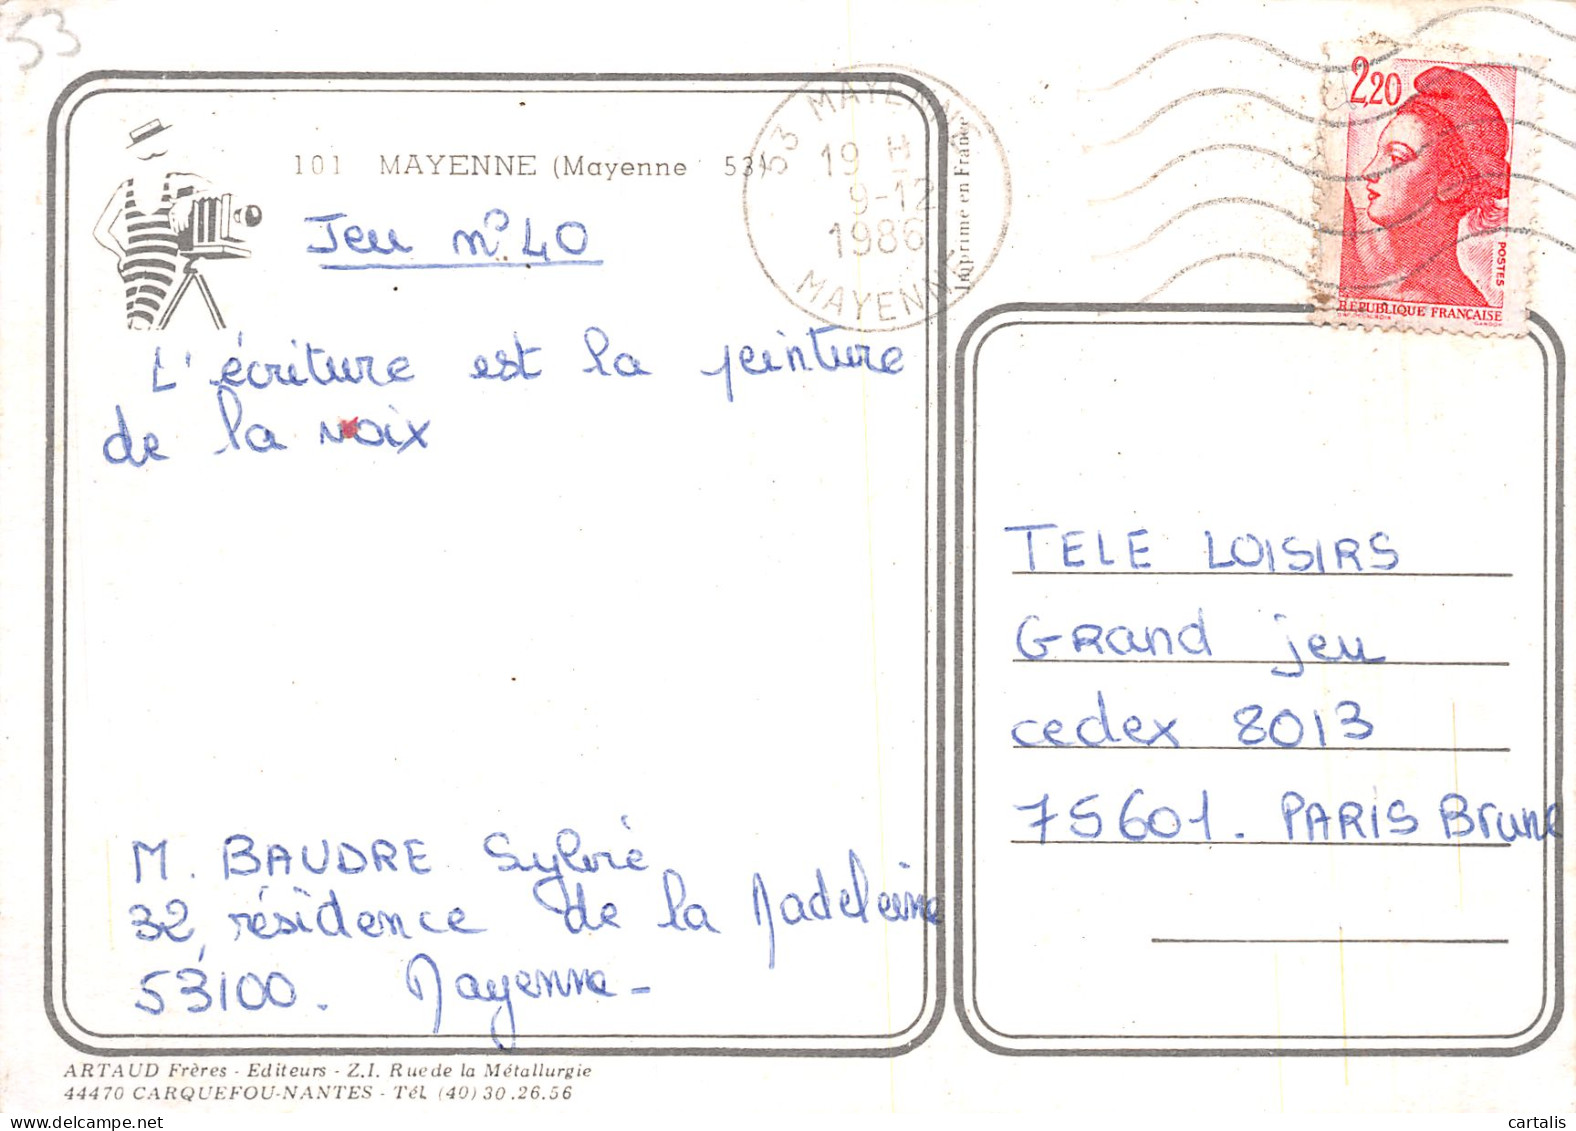 53
101 MAYENNE (Mayenne 53)
Jeu n° 40
L'écriture est la peinture
de la voix
M. BAUDRE Sylvie
32, résidence de la Madeleine
53100. Mayenne -
ARTAUD Frères - Editeurs - Z.I. Rue de la Métallurgie
44470 CARQUEFOU-NANTES - Tél. (40) 30.26.56
53 MAYENNE
19 H
9-12
1986
MAYENNE
Imprimé en France
2,20
POSTES
REPUBLIQUE FRANÇAISE
GANDON
TELE LOISIRS
Grand jeu
cedex 8013
75601. PARIS Brune
cartalis